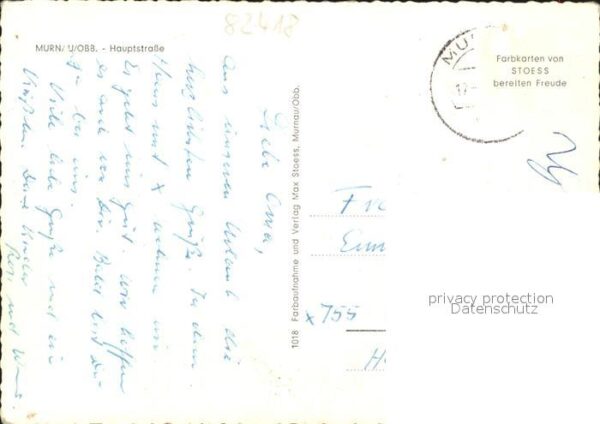 82418
MURN/ U/OBB. - Hauptstraße
Liebe Oma,
aus unserem Urlaub die
herzlichsten Grüße. In dem
Haus mit x wohnen wir
Es geht uns gut. Wir hoffen
es auch von Dir. Bald bist Du
ja bei uns.
Viele liebe Grüße und ein
Küßlein. Deine Kinder
und
1018 Farbaufnahme und Verlag Max Stoess, Murnau/Obb.
MU
Farbkarten von
STOESS
bereiten Freude
Fr
x 755
H
privacy protection
Datenschutz